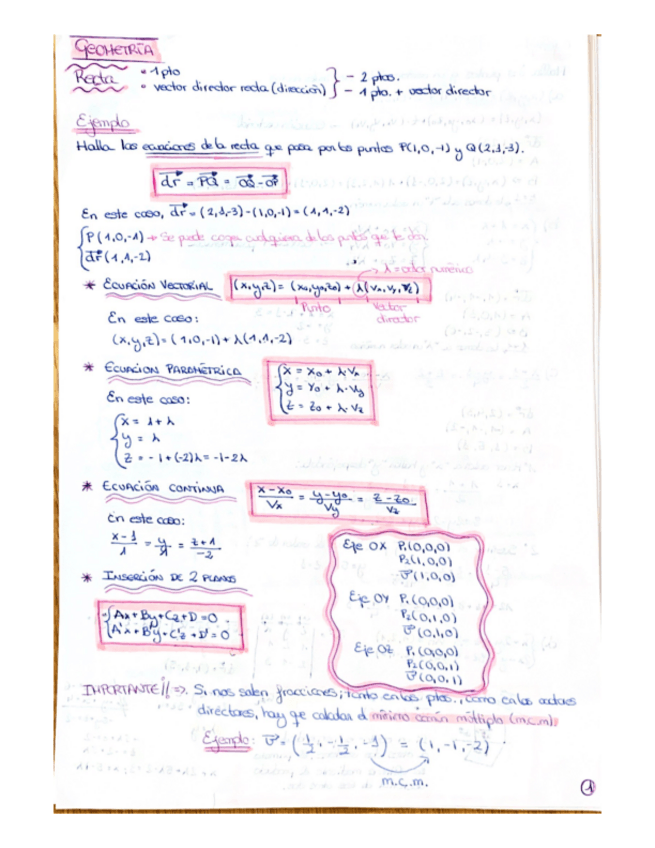 GEOMETRÍA
Recta • 1 pto
• vector director recta (dirección) } - 2 ptos.
- 1 pto. + vector director
Ejemplo
Halla las ecuaciones de la recta que pasa por los puntos P(1,0,-1) y Q(2,1,-3).
dr = PQ = OQ - OP
En este caso, dr = (2,1,-3) - (1,0,-1) = (1,1,-2)
P(1,0,-1) → Se puede coger cualquiera de los puntos que te dan.
dr (1,1,-2)
λ = valor numérico
* ECUACIÓN VECTORIAL (x,y,z) = (x0,y0,z0) + λ(Vx,Vy,Vz)
Punto Vector director
En este caso:
(x,y,z) = (1,0,-1) + λ(1,1,-2)
* ECUACION PARAMÉTRICA
x = x0 + λ·Vx
y = y0 + λ·Vy
z = z0 + λ·Vz
En este caso:
x = 1 + λ
y = λ
z = -1 + (-2)λ = -1-2λ
* ECUACIÓN CONTINUA x-x0/Vx = y-y0/Vy = z-z0/Vz
En este caso:
x-1/1 = y/1 = z+1/-2
* INSERCIÓN DE 2 PLANOS
Ax + By + Cz + D = 0
A'x + B'y + C'z + D' = 0
Eje OX P1(0,0,0)
P2(1,0,0)
v(1,0,0)
Eje OY P1(0,0,0)
P2(0,1,0)
v(0,1,0)
Eje OZ P1(0,0,0)
P2(0,0,1)
v(0,0,1)
IMPORTANTE!! => Si nos salen fracciones, tanto en los ptos., como en los vectores
directores, hay que calcular el mínimo común múltiplo (m.c.m).
Ejemplo: v = (1/2, -1/2, -1) = (1,-1,-2)
m.c.m.
1